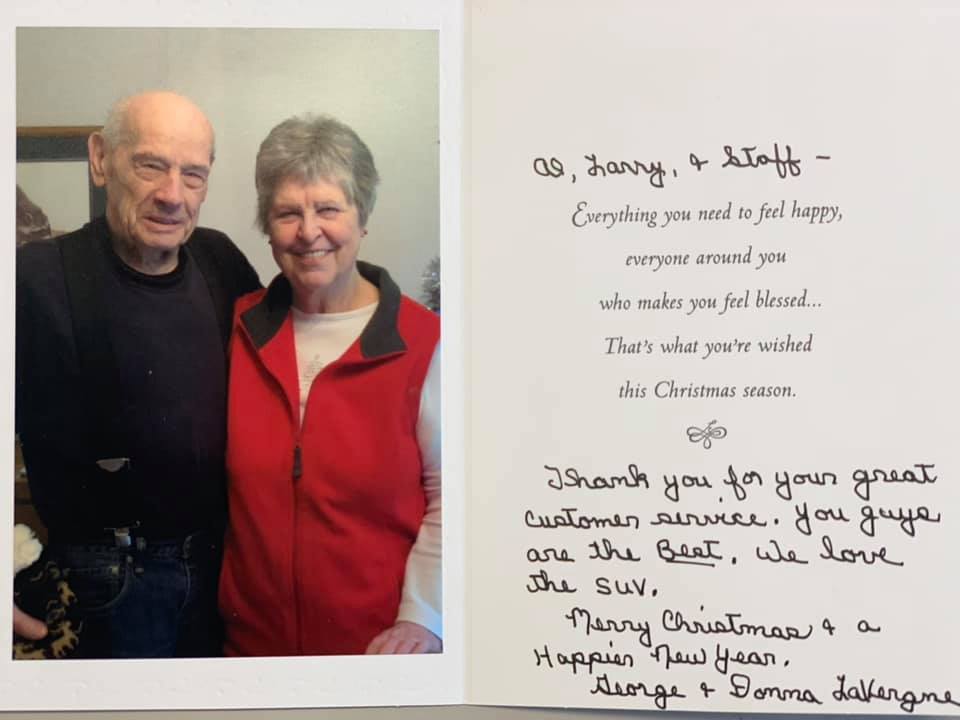 Al, Larry, & Staff -
Everything you need to feel happy,
everyone around you
who makes you feel blessed...
That's what you're wished
this Christmas season.
Thank you for your great
customer service. You guys
are the Best. We love
the SUV.
Merry Christmas & a
Happier New Year.
George & Donna LaVergne